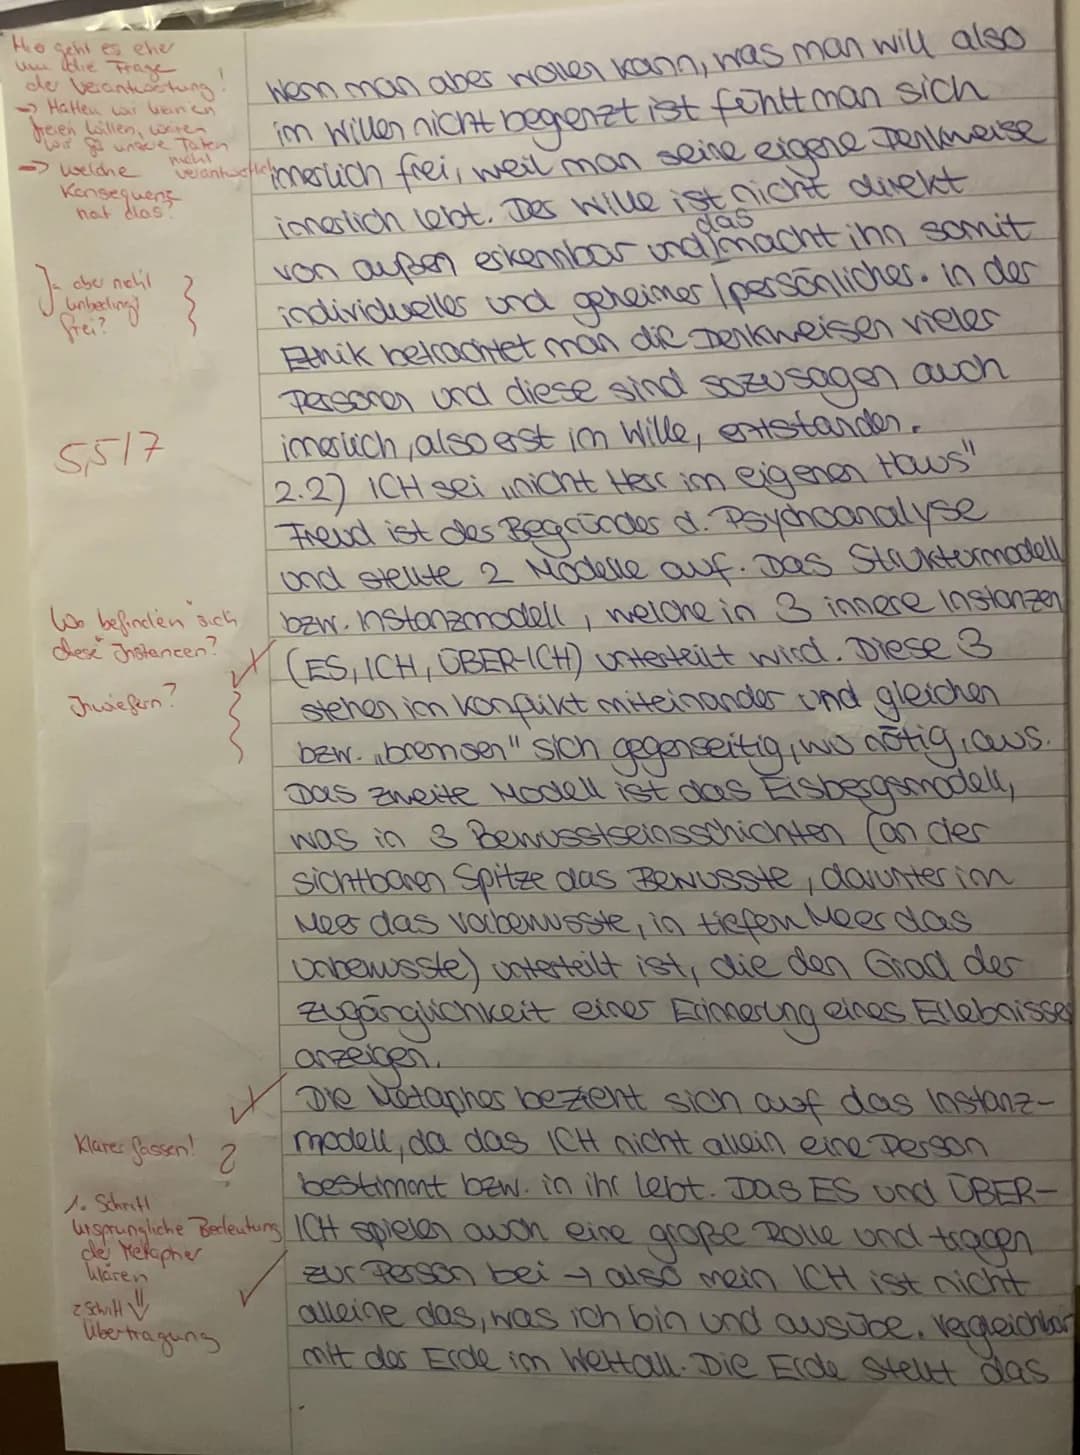 Hier geht es eher
um die Frage
der Verantwortung!
→ Hätten wir keinen
freien Willen, wären
wir für unsere Taten
nicht verantwortlich
→ welche
Konsequenz
hat das?
aber nicht
unbedingt
frei?
5,5/7
Wo befinden sich
diese Instanzen?
Inwiefern?
Klarer fassen!
?
1. Schritt
ursprüngliche Bedeutung
der Metapher
klären
2. Schritt
Übertragung
Wenn man aber wollen kann, was man will also
im Willen nicht begenzt ist fühlt man sich
innerlich frei, weil man seine eigene Denkweise
innerlich lebt. Der Wille ist nicht direkt
von außen erkennbar und das macht ihn somit
individueller und geheimer/persönlicher. In der
Ethik betrachtet man die Denkweisen vieler
Personen und diese sind sozusagen auch
innerlich, also erst im Wille, entstanden.
2.2) ICH sei „nicht Herr im eigenen Haus"
Freud ist der Begründer d. Psychoanalyse
und stellte 2 Modelle auf. Das Strukturmodell
bzw. Instanzmodell, welche in 3 innere Instanzen
(ES, ICH, ÜBER-ICH) unterteilt wird. Diese 3
stehen im Konflikt miteinander und gleichen
bzw. „bremsen" sich gegenseitig, wo nötig, aus.
Das zweite Modell ist das Eisbergsmodell,
was in 3 Bewusstseinsschichten (an der
sichtbaren Spitze das Bewusste, darunter im
Meer das Vorbewusste, in tiefen Meer das
Unbewusste) unterteilt ist, die den Grad der
Zugänglichkeit einer Erinnerung eines Erlebnisses
anzeigen.
Die Metapher bezieht sich auf das Instanz-
modell, da das ICH nicht allein eine Person
bestimmt bzw. in ihr lebt. Das ES und ÜBER-
ICH spielen auch eine große Rolle und tragen
zur Person bei → also mein ICH ist nicht
alleine das, was ich bin und ausübe. Vergleichbar
mit der Erde im Weltall. Die Erde stellt das